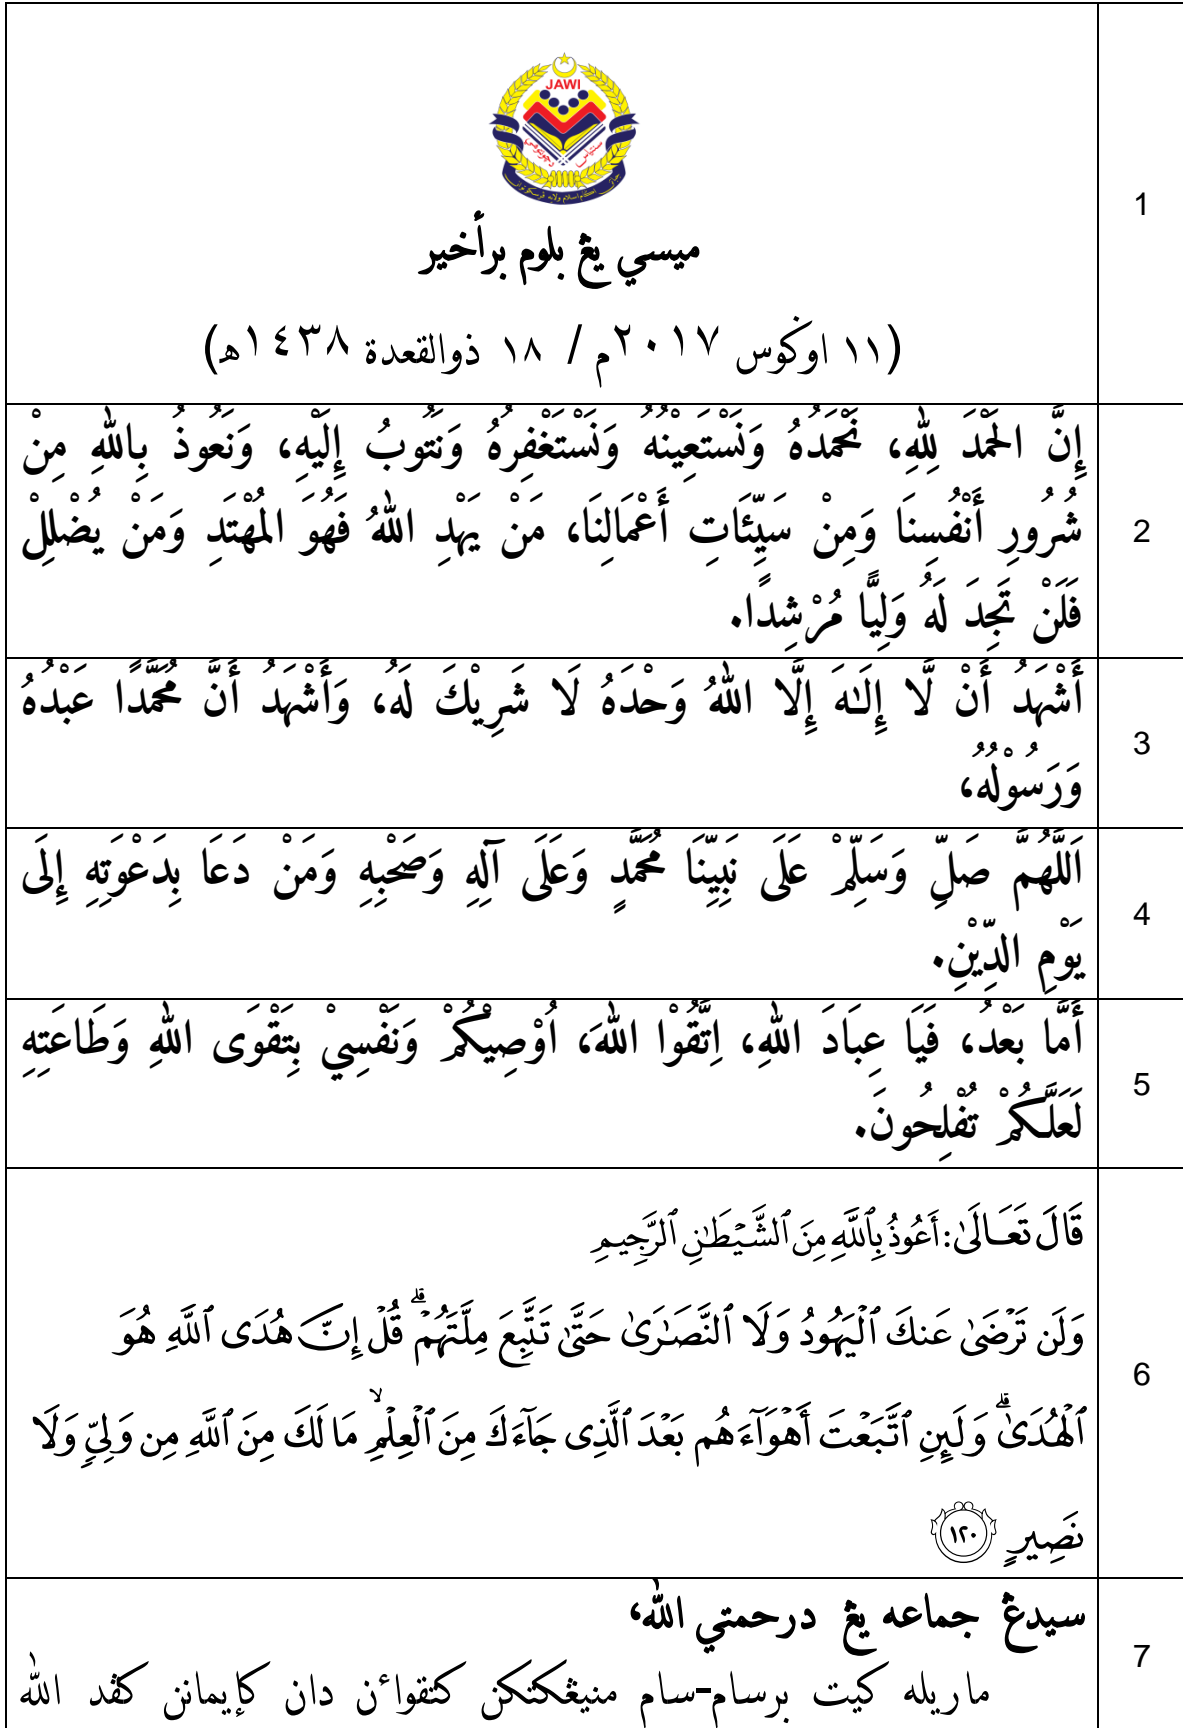 JAWI
ميسي يڠ بلوم برأخير
(١١ اوݢوس ٢٠١٧م / ١٨ ذوالقعدة ١٤٣٨هـ)
1
إِنَّ الْحَمْدَ لِلّٰهِ، نَحْمَدُهُ وَنَسْتَعِيْنُهُ وَنَسْتَغْفِرُهُ وَنَتُوبُ إِلَيْهِ، وَنَعُوذُ بِاللهِ مِنْ
شُرُورِ أَنْفُسِنَا وَمِنْ سَيِّئَاتِ أَعْمَالِنَا، مَنْ يَهْدِ اللهُ فَهُوَ الْمُهْتَدِ وَمَنْ يُضْلِلْ
فَلَنْ تَجِدَ لَهُ وَلِيًّا مُرْشِدًا.
2
أَشْهَدُ أَنْ لَّا إِلَـٰهَ إِلَّا اللهُ وَحْدَهُ لَا شَرِيْكَ لَهُ، وَأَشْهَدُ أَنَّ مُحَمَّدًا عَبْدُهُ
وَرَسُوْلُهُ،
3
اَللَّهُمَّ صَلِّ وَسَلِّمْ عَلَى نَبِيِّنَا مُحَمَّدٍ وَعَلَى آلِهِ وَصَحْبِهِ وَمَنْ دَعَا بِدَعْوَتِهِ إِلَى
يَوْمِ الدِّيْنِ.
4
أَمَّا بَعْدُ، فَيَا عِبَادَ اللهِ، اِتَّقُوْا اللهَ، اُوْصِيْكُمْ وَنَفْسِيْ بِتَقْوَى اللهِ وَطَاعَتِهِ
لَعَلَّكُمْ تُفْلِحُونَ.
5
قَالَ تَعَالَىٰ: أَعُوذُ بِٱللَّهِ مِنَ ٱلشَّيْطَٰنِ ٱلرَّجِيمِ
وَلَن تَرْضَىٰ عَنكَ ٱلْيَهُودُ وَلَا ٱلنَّصَٰرَىٰ حَتَّىٰ تَتَّبِعَ مِلَّتَهُمْ ۗ قُلْ إِنَّ هُدَى ٱللَّهِ هُوَ
ٱلْهُدَىٰ ۗ وَلَئِنِ ٱتَّبَعْتَ أَهْوَآءَهُم بَعْدَ ٱلَّذِى جَآءَكَ مِنَ ٱلْعِلْمِ ۙ مَا لَكَ مِنَ ٱللَّهِ مِن وَلِىٍّ وَلَا
نَصِيرٍ ١٢٠
6
سيدڠ جماعه يڠ درحمتي الله،
ماريله كيت برسام-سام منيڠكتكن كتقواءن دان كإيمانن كڤد الله
7